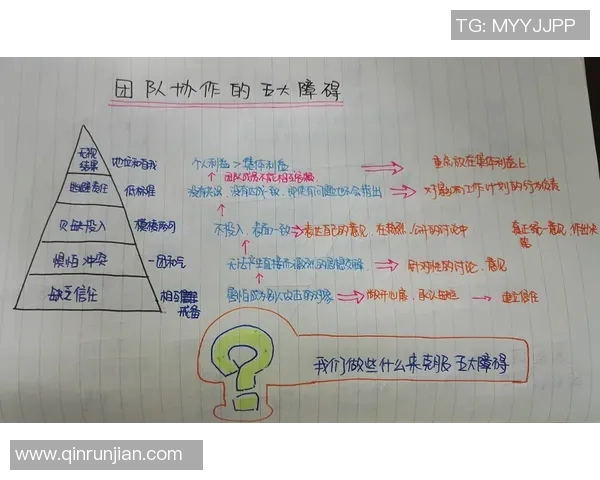 TG: MYYJJPP
团队协作的五大障碍
无视结果 地位和自我 个人利益 > 集体利益 重点放在集体利益上
团队成员不能相互
逃避责任 低标准 没有达成一致，即使有问题也不会指出 对影响工作计划的行为负责
欠缺投入 模棱两可 不投入，表面一致 表达自己的意见，在激烈、公开的讨论中 真正统一意见，作出决策
惧怕冲突 一团和气 无法产生直接而激烈的思想交锋 针对性的讨论，意见
缺乏信任 相互戒备 害怕成为别人攻击的对象 敞开心扉，承认 建立信任
我们做些什么来克服五大障碍
www.qinrunjian.com